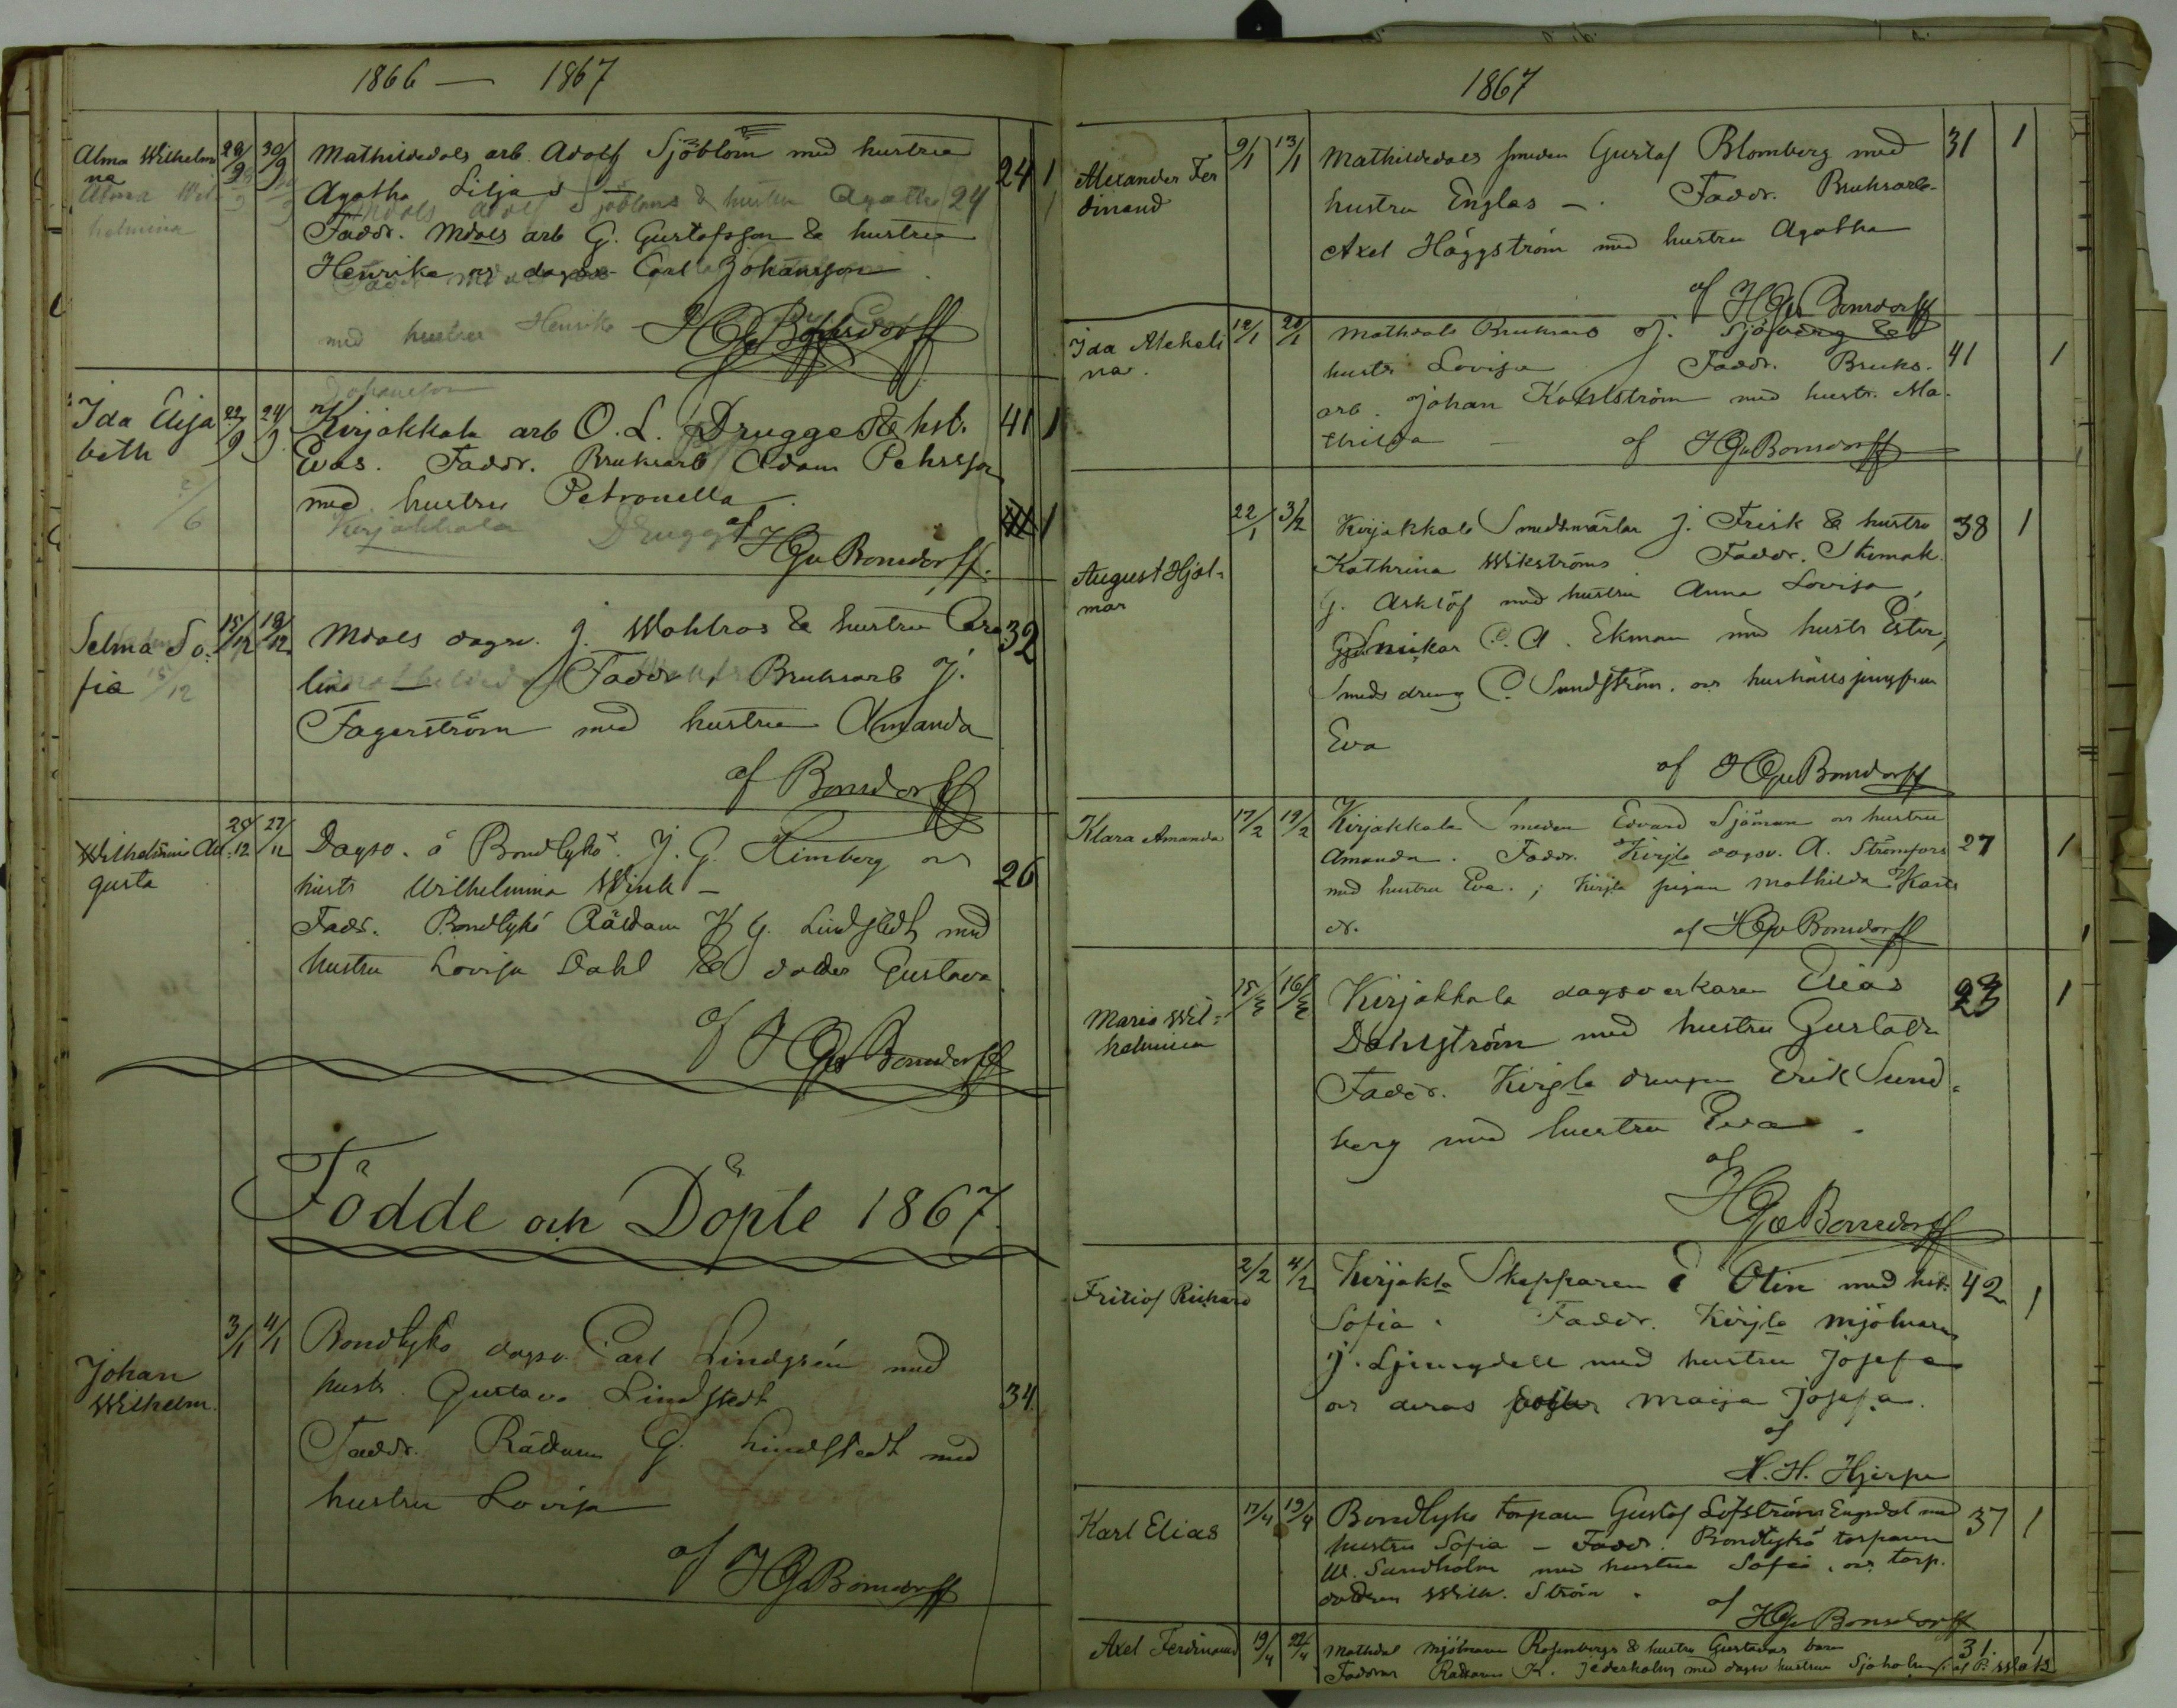 1866 — 1867
Alma Wilhelmi
na
28/9 30/9
Mathildedals arb. Adolf Sjöblom med hustru
24 1
Agatha Liljas
Alma Wil
helmina
Sjöbloms & hustru Agatha 24
Faddr. Mdals arb G. Gustafsson & hustru
Henrika o dagsv Carl Johansson
med hustru Henrika
HGvBonsdorff
Johansson
Ida Elisa
beth
22/9 24/9
Kirjakkala arb O. L. Drugge & hst.
41 1
Evas. Faddr. Bruksarb Adam Pehrsson
med hustru Petronella
Kirjakkala Drugge
1
af HGvBonsdorff.
Selma So-
fia
15/12 18/12
Mdals dagsv. J. Wahlros & hustru Caro
32
lina — Faddr, Bruksarb J.
15/12
Fagerström med hustru Amanda
af Bonsdorff
Wilhelmina Au-
gusta
25/12 27/12
Dagsv. å Bondbykö. J. G. Himberg o
hustr Wilhelmina Wink –
26
Fadr. Bondbykö Rättarn K G. Lindstedt med
hustru Lovisa Dahl & dotter Gustava
af HGvBonsdorff
Födde och Döpte 1867.
Johan
Wilhelm.
3/1 4/1
Bondbyko dagsv. Carl Lindgrén med
hustr. Gustava Lindstedt
34.
Faddr. Rättarn G. Lindstedt med
hustru Lovisa
af HGvBonsdorff
1867
Alexander Fer
dinand
9/1 13/1
Mathildedals smeden Gustaf Blomberg med
31 1
hustru Englas –. Faddr. Bruksarb-
Axel Häggström med hustru Agatha
af HGvBonsdorff
Ida Mekeli
na.
12/1 20/1
Mathdals Bruksarb J. Sjöberg &
hustr Lovisa Faddr. Bruks.
41 1
arb. Johan Kohlström med hustr. Ma-
thilda – af HGvBonsdorff
August Hjal-
mar
22/1 3/2
Kirjakkala Smedmästar J. Frisk & hustru
38 1
Kathrina Wikströms Faddr. Stenmak.
G. Asklöf med hustru Anna Lovisa,
Snickar C. A. Ekman med hustr Ester,
Smeds dreng C. Sundström. o hushålls jungfrun
Eva
af HGvBonsdorff
Klara Amanda
17/2 19/2
Kirjakkala Smeden Edvard Sjöman o hustru
Amanda. Faddr. Kirjla dagsv. A. Strömfors
27 1
med hustru Eva.; Kirjla pigan Mathilda Karls
dr.
af HGvBonsdorff
Maria Wil-
helmina
15/3 16/3
Kirjakkala dagsverkaren Elias
23 1
Dahlström med hustru Gustava
Faddr. Kirjla drengen Erik Sund-
berg med hustru Eva.
af
HGvBonsdorff
Fritiof Richard
2/2 4/2
Kirjakla Skepparen E Olin med hst.
42 1
Sofia. Faddr. Kirjla mjölnaren
J. Ljungdell med hustru Josefa
o deras dotter Maija Josefa.
af
H. H. Hjerpe
Karl Elias
17/4 19/4
Bondbyko torparn Gustaf Löfström Engsdal med
37 1
hustru Sofia – Faddr. Bondbykö torparen
W. Sundholm med hustru Sofia, o torp.
dottren Wilh. Ström.
af HGvBonsdorff
Axel Ferdinand
19/4 22/4
Mathdal mjölnaren Rosenbergs & hustru Gustavas barn
31. 1
Faddrar Rättaren K. Jederholm med dagsv hustrun Sjöholm